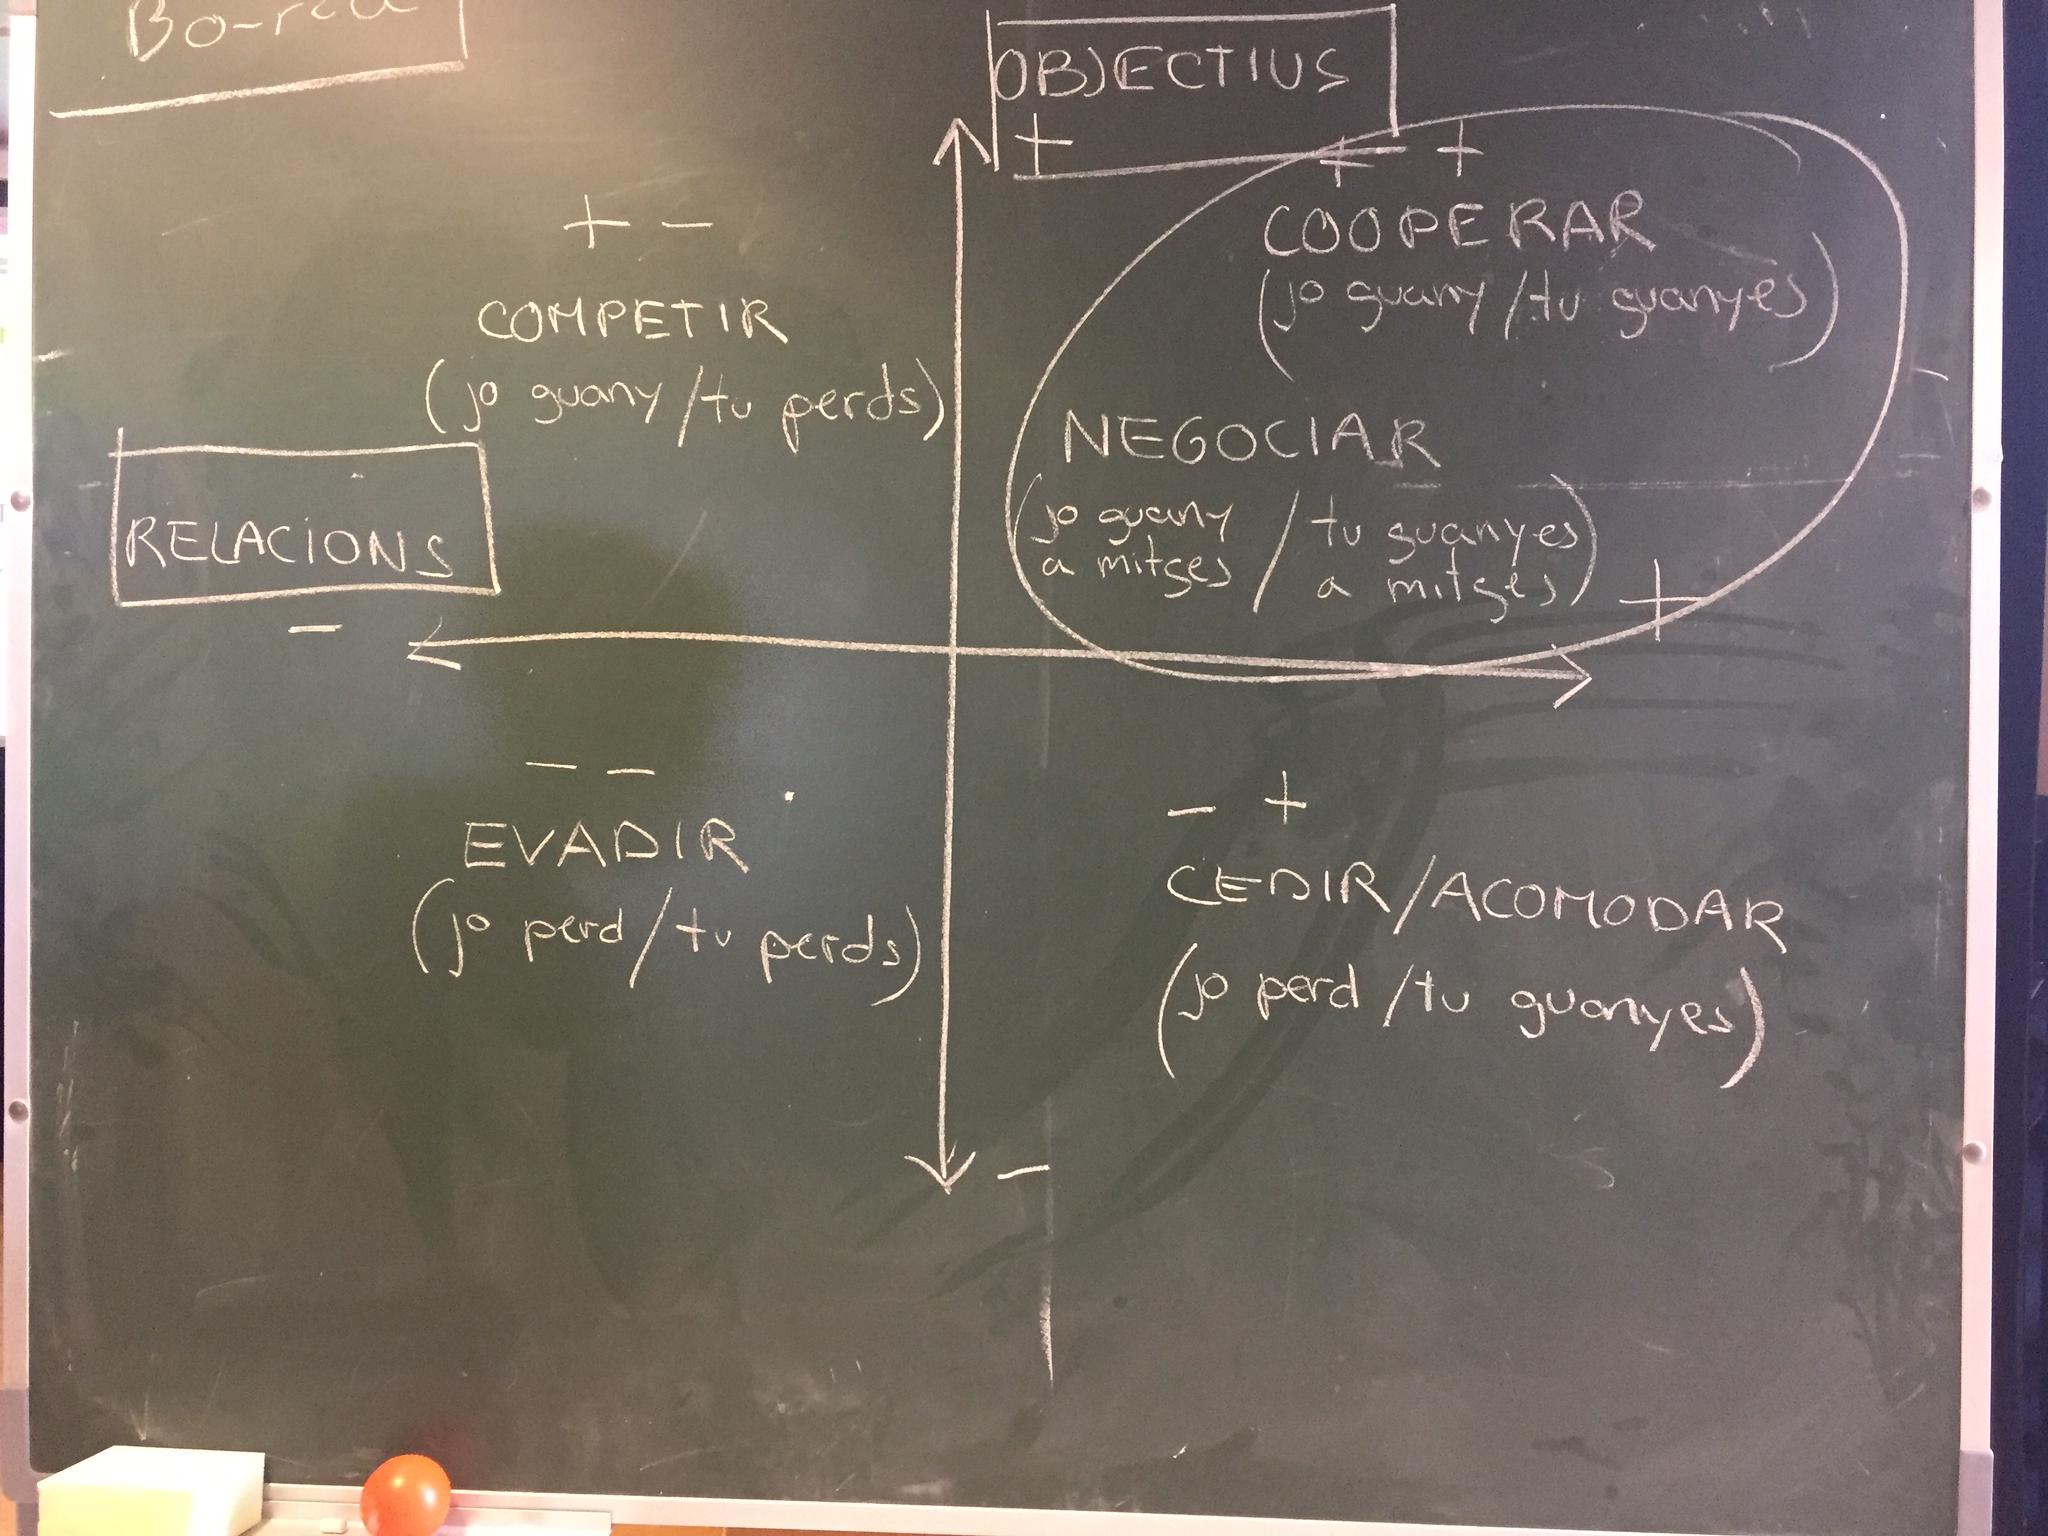 OBJECTIUS
+
+ +
COOPERAR
(jo guany / tu guanyes)
+ -
COMPETIR
(jo guany / tu perds)
NEGOCIAR
(jo guany / tu guanyes
a mitges / a mitges)
+
RELACIONS
-
- -
EVADIR
(jo perd / tu perds)
- +
CEDIR / ACOMODAR
(jo perd / tu guanyes)
-